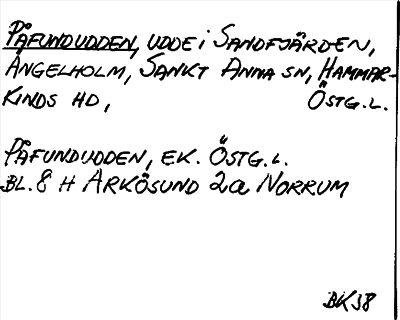 PÅFUNDUDDEN, UDDE i SANDFJÄRDEN,
ÄNGELHOLM, SANKT ANNA SN, HAMMAR-
KINDS HD, ÖSTG.L.
PÅFUNDUDDEN, EK. ÖSTG.L.
BL. 8 H ARKÖSUND 2a NORRUM
BK38